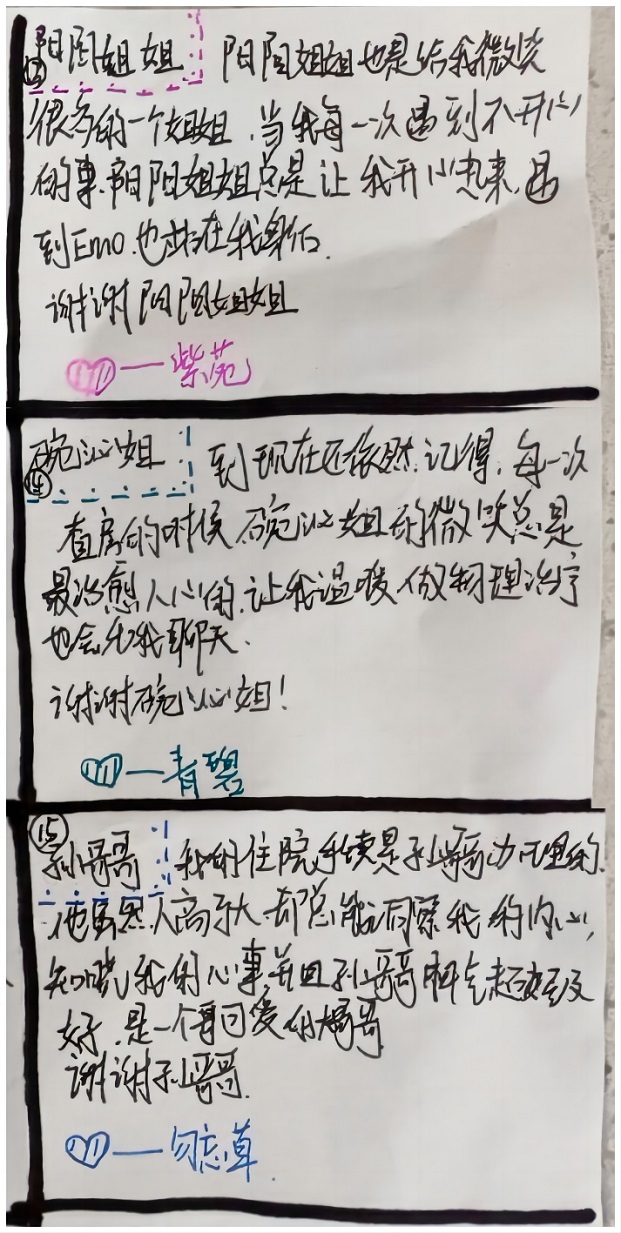 ⑬ 阳阳姐姐 阳阳姐姐也是给我微笑
很多的一个姐姐,当我每一次遇到不开心
的事,阳阳姐姐总是让我开心起来,遇
到Emo.也站在我身后.
谢谢阳阳姐姐
——紫苑
⑭ 琬沁姐 到现在还依然记得,每一次
查房的时候琬沁姐的微笑总是
最治愈人心的,让我温暖,做物理治疗
也会和我聊天.
谢谢琬沁姐!
——青碧
⑮ 孙哥哥 我的住院手续是孙哥哥办理的.
他虽然人高马大却总能洞察我的内心,
知晓我的心事,并且孙哥哥脾气超级
好,是一个可爱的大哥哥
谢谢孙哥哥.
——勿忘草